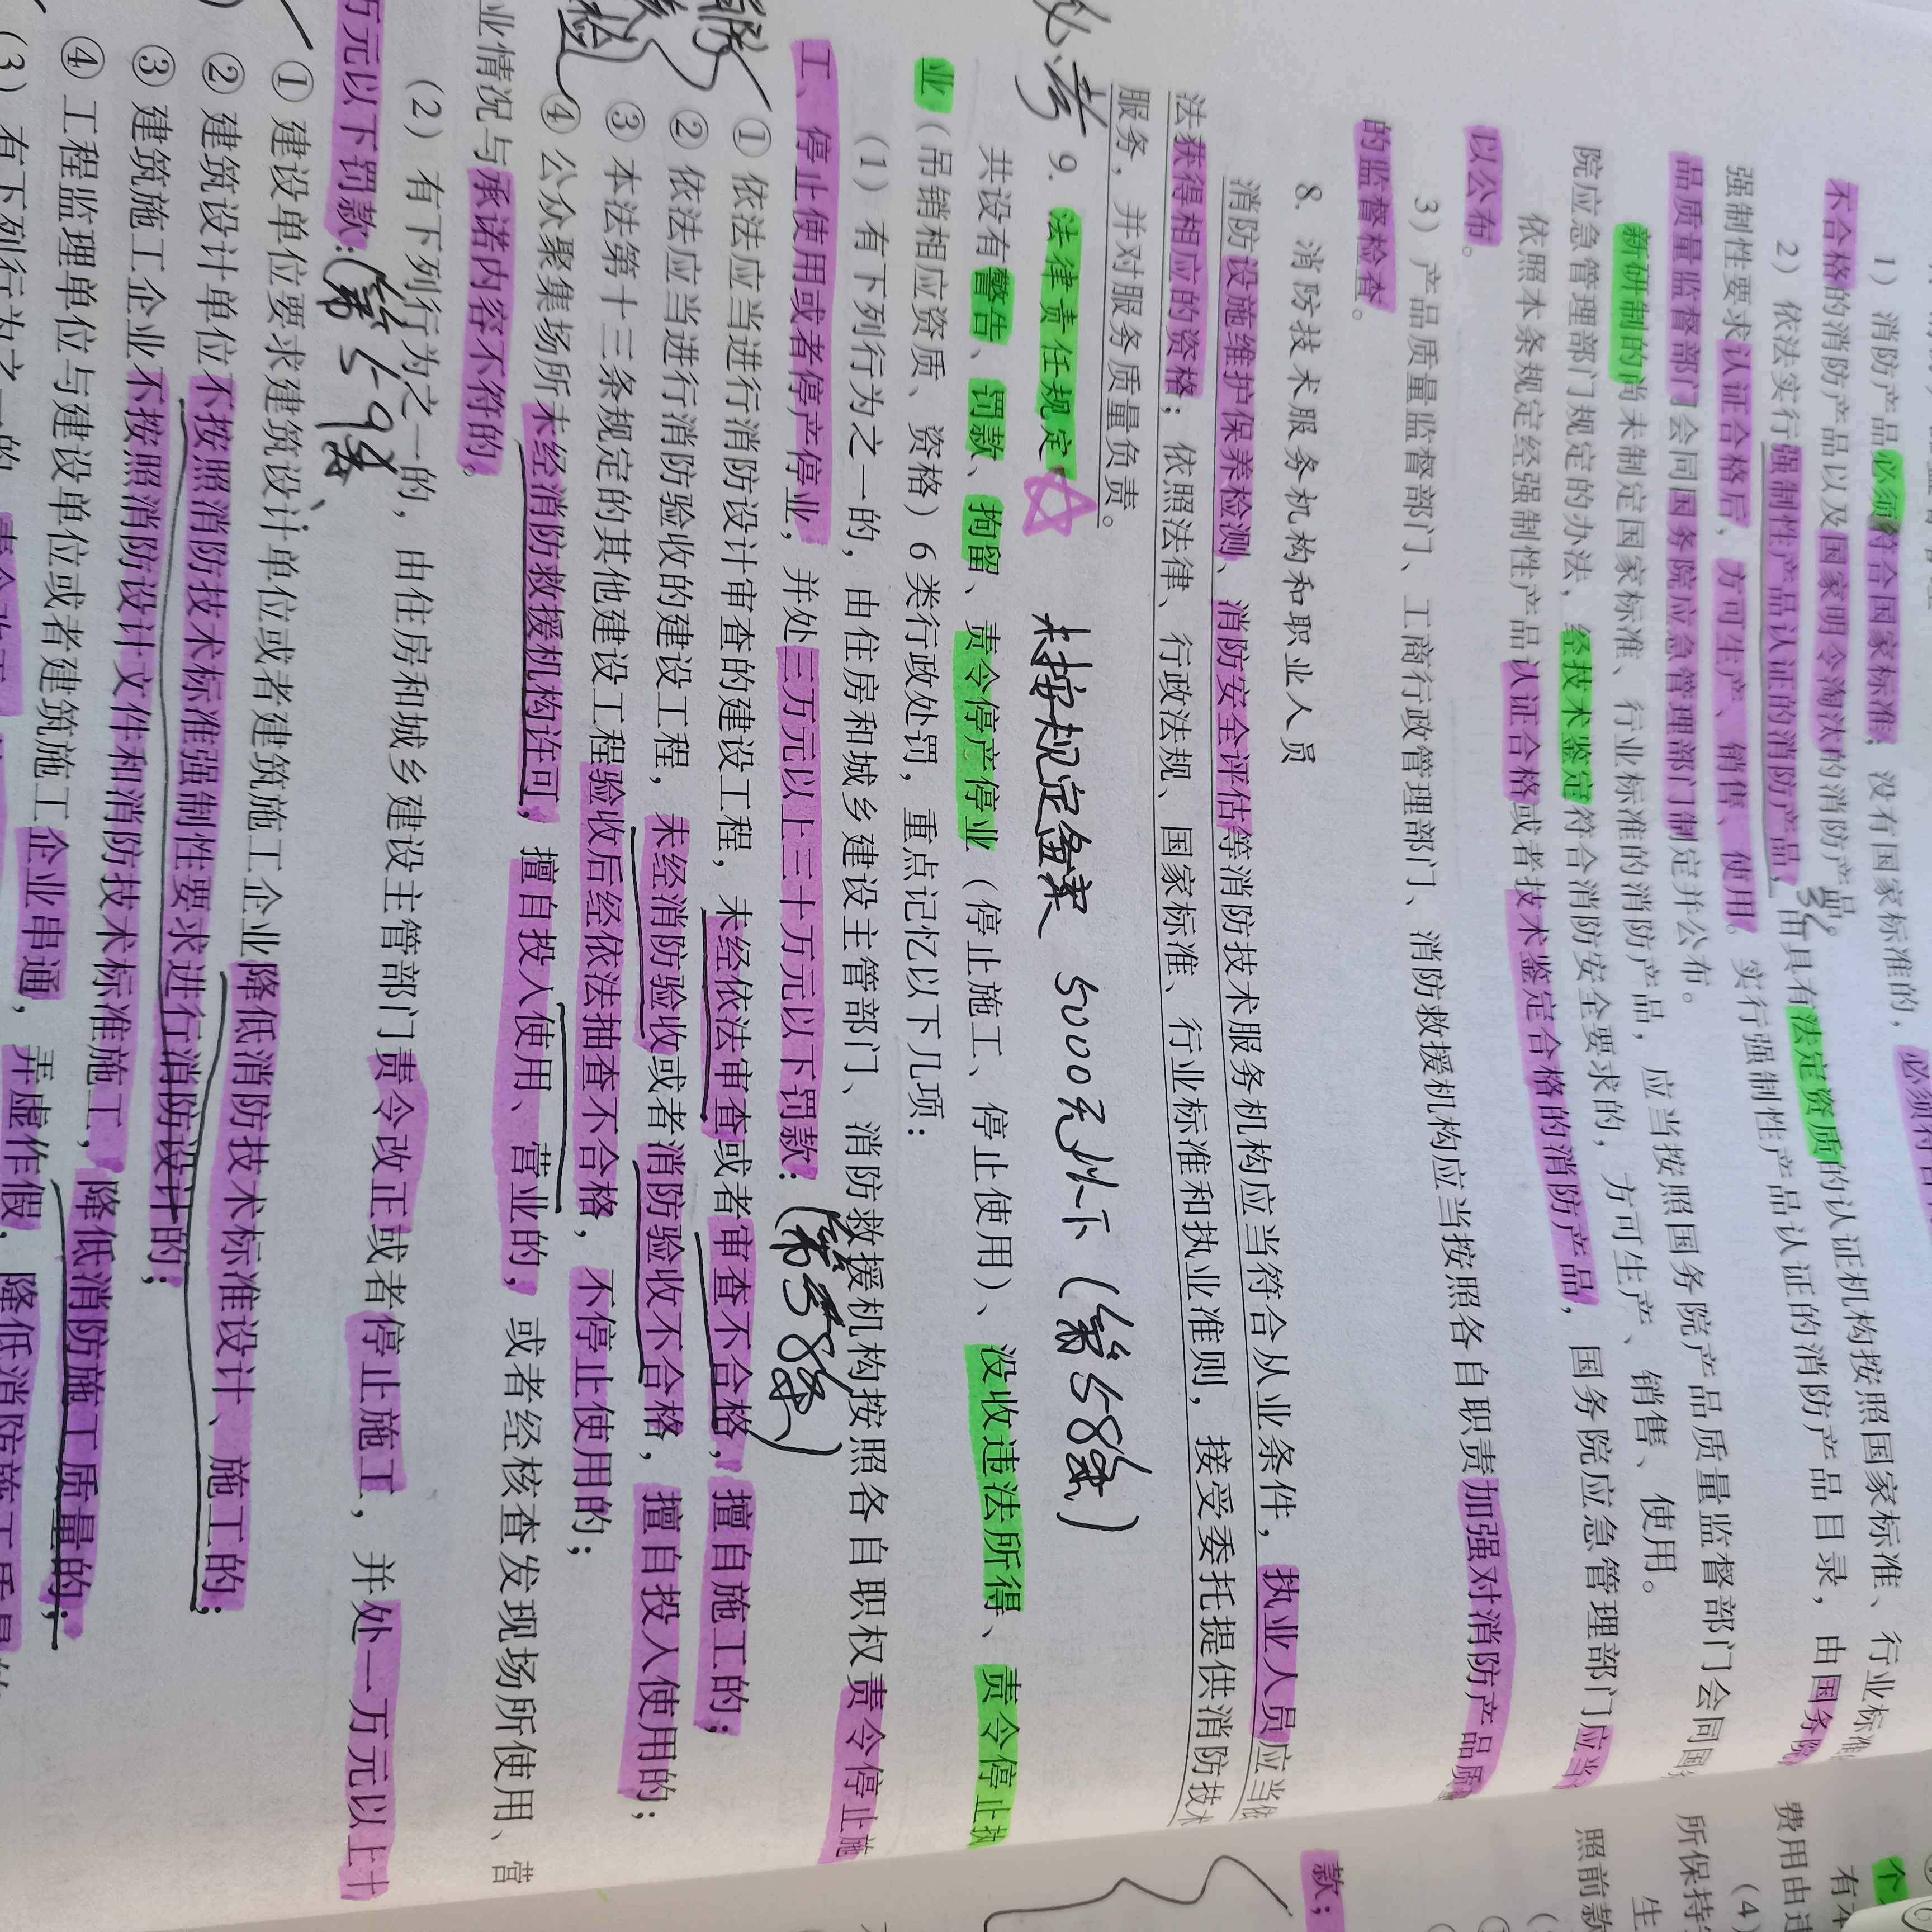 1）消防产品必须符合国家标准；没有国家标准的，必须符合行业标准
不合格的消防产品以及国家明令淘汰的消防产品。
2）依法实行强制性产品认证的消防产品，由具有法定资质的认证机构按照国家标准、行业标准
强制性要求认证合格后，方可生产、销售、使用。实行强制性产品认证的消防产品目录，由国务院
品质量监督部门会同国务院应急管理部门制定并公布。
新研制的尚未制定国家标准、行业标准的消防产品，应当按照国务院产品质量监督部门会同国
院应急管理部门规定的办法，经技术鉴定符合消防安全要求的，方可生产、销售、使用。
依照本条规定经强制性产品认证合格或者技术鉴定合格的消防产品，国务院应急管理部门应当
以公布。
3）产品质量监督部门、工商行政管理部门、消防救援机构应当按照各自职责加强对消防产品质
的监督检查。
8. 消防技术服务机构和职业人员
消防设施维护保养检测、消防安全评估等消防技术服务机构应当符合从业条件，执业人员应当依
法获得相应的资格；依照法律、行政法规、国家标准、行业标准和执业准则，接受委托提供消防技术
服务，并对服务质量负责。
必考 9. 法律责任规定 未按规定备案 5000元以下（第58条）
共设有警告、罚款、拘留、责令停产停业（停止施工、停止使用）、没收违法所得、责令停止执
业（吊销相应资质、资格）6类行政处罚，重点记忆以下几项：
（1）有下列行为之一的，由住房和城乡建设主管部门、消防救援机构按照各自职权责令停止施
工、停止使用或者停产停业，并处三万元以上三十万元以下罚款：（第58条）
① 依法应当进行消防设计审查的建设工程，未经依法审查或者审查不合格，擅自施工的；
② 依法应当进行消防验收的建设工程，未经消防验收或者消防验收不合格，擅自投入使用的；
③ 本法第十三条规定的其他建设工程验收后经依法抽查不合格，不停止使用的；
④ 公众聚集场所未经消防救援机构许可，擅自投入使用、营业的，或者经核查发现场所使用、营
业情况与承诺内容不符的。
（2）有下列行为之一的，由住房和城乡建设主管部门责令改正或者停止施工，并处一万元以上十
万元以下罚款：（第59条）
① 建设单位要求建筑设计单位或者建筑施工企业降低消防技术标准设计、施工的；
② 建筑设计单位不按照消防技术标准强制性要求进行消防设计的；
③ 建筑施工企业不按照消防设计文件和消防技术标准施工，降低消防施工质量的；
④ 工程监理单位与建设单位或者建筑施工企业串通，弄虚作假，降低消防施工质量的
（3）有下列行为之一的，责令改正
款；
个
有
费用由
（4）
所保持
生
照前款